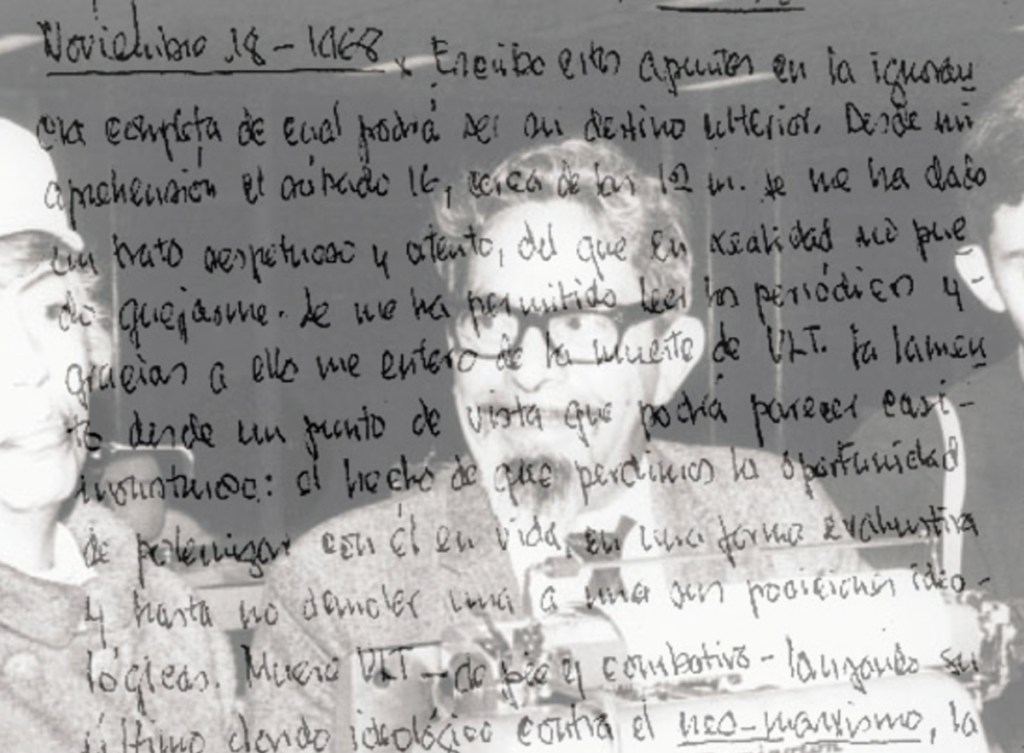 Noviembre 18 - 1968. Escribo estos apuntes en la ignoran
cia completa de cual podrá ser su destino ulterior. Desde mi
aprehensión el sábado 16, cerca de las 12 m. se me ha dado
un trato respetuoso y atento, del que en realidad no pue
do quejarme. Se me ha permitido leer los periódicos y -
gracias a ello me entero de la muerte de VLT. La lamen
to desde un punto de vista que podría parecer casi -
monstruoso: el hecho de que perdimos la oportunidad
de polemizar con él en vida, en una forma exahustiva
y hasta no demoler una a una sus posiciones ideo -
lógicas. Muere VLT - de pie y combativo - lanzando su
último dardo ideológico contra el neo-marxismo, la